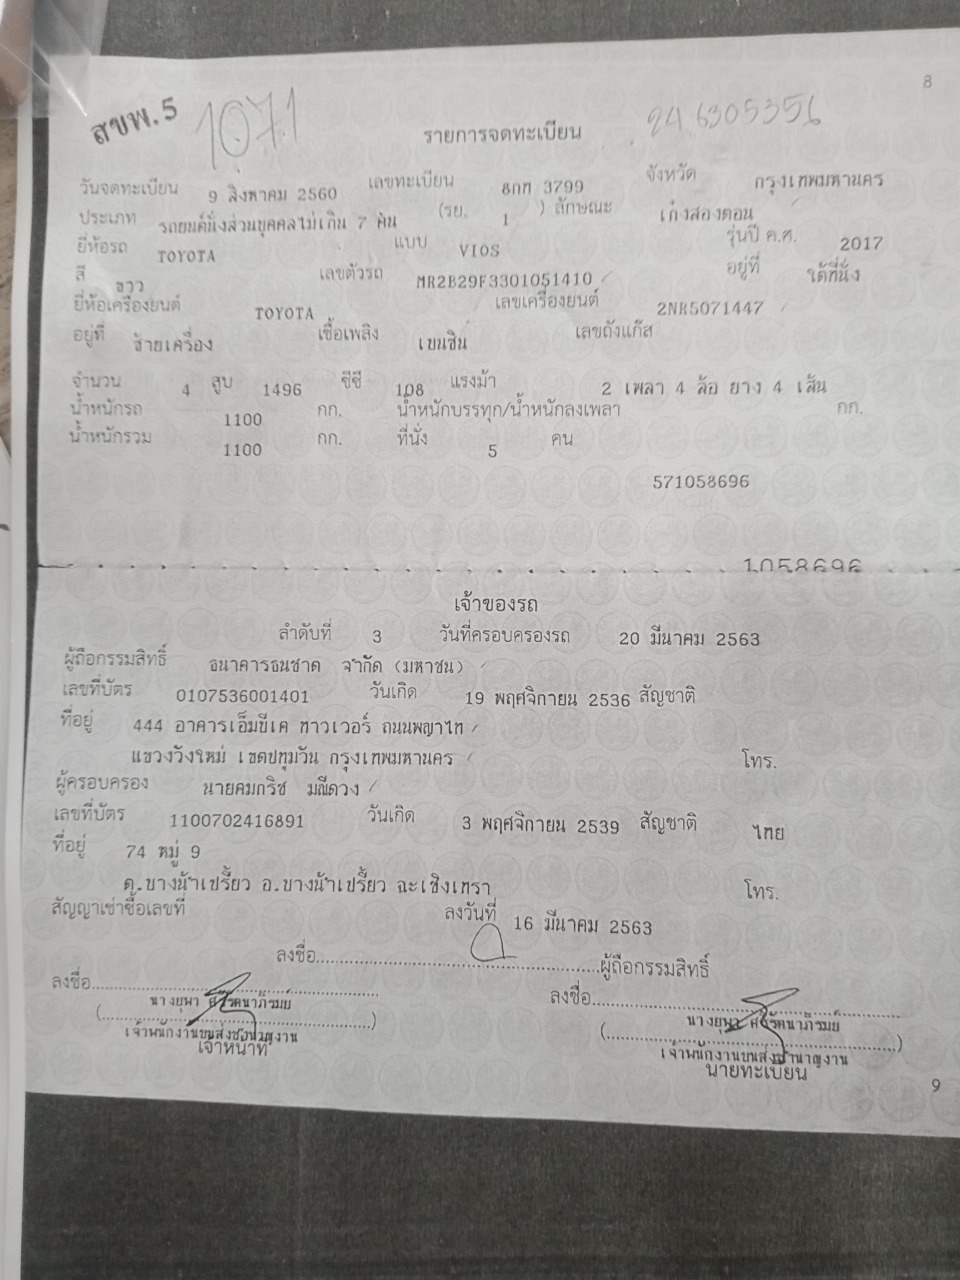 8
สขพ.5 1071 246305356
รายการจดทะเบียน
วันจดทะเบียน 9 สิงหาคม 2560 เลขทะเบียน 8กท 3799 จังหวัด กรุงเทพมหานคร
ประเภท รถยนต์นั่งส่วนบุคคลไม่เกิน 7 คน (รย. 1 ) ลักษณะ เก๋งสองตอน
ยี่ห้อรถ TOYOTA แบบ VIOS รุ่นปี ค.ศ. 2017
สี ขาว เลขตัวรถ MR2B29F3301051410 อยู่ที่ ใต้ที่นั่ง
ยี่ห้อเครื่องยนต์ TOYOTA เลขเครื่องยนต์ 2NR5071447
อยู่ที่ ซ้ายเครื่อง เชื้อเพลิง เบนซิน เลขถังแก๊ส
จำนวน 4 สูบ 1496 ซีซี 108 แรงม้า 2 เพลา 4 ล้อ ยาง 4 เส้น
น้ำหนักรถ 1100 กก. น้ำหนักบรรทุก/น้ำหนักลงเพลา กก.
น้ำหนักรวม 1100 กก. ที่นั่ง 5 คน
571058696
1058696
เจ้าของรถ
ลำดับที่ 3 วันที่ครอบครองรถ 20 มีนาคม 2563
ผู้ถือกรรมสิทธิ์ ธนาคารธนชาต จำกัด (มหาชน)
เลขที่บัตร 0107536001401 วันเกิด 19 พฤศจิกายน 2536 สัญชาติ
ที่อยู่ 444 อาคารเอ็มบีเค ทาวเวอร์ ถนนพญาไท
แขวงวังใหม่ เขตปทุมวัน กรุงเทพมหานคร โทร.
ผู้ครอบครอง นายคมกริช มณีดวง
เลขที่บัตร 1100702416891 วันเกิด 3 พฤศจิกายน 2539 สัญชาติ ไทย
ที่อยู่ 74 หมู่ 9
ต.บางน้ำเปรี้ยว อ.บางน้ำเปรี้ยว ฉะเชิงเทรา โทร.
สัญญาเช่าซื้อเลขที่ ลงวันที่ 16 มีนาคม 2563
ลงชื่อ..........ผู้ถือกรรมสิทธิ์
ลงชื่อ.......... ลงชื่อ..........
นางยุพา นางยุพา
เจ้าพนักงานขนส่งชำนาญงาน เจ้าพนักงานขนส่งชำนาญงาน
เจ้าหน้าที่ นายทะเบียน
9